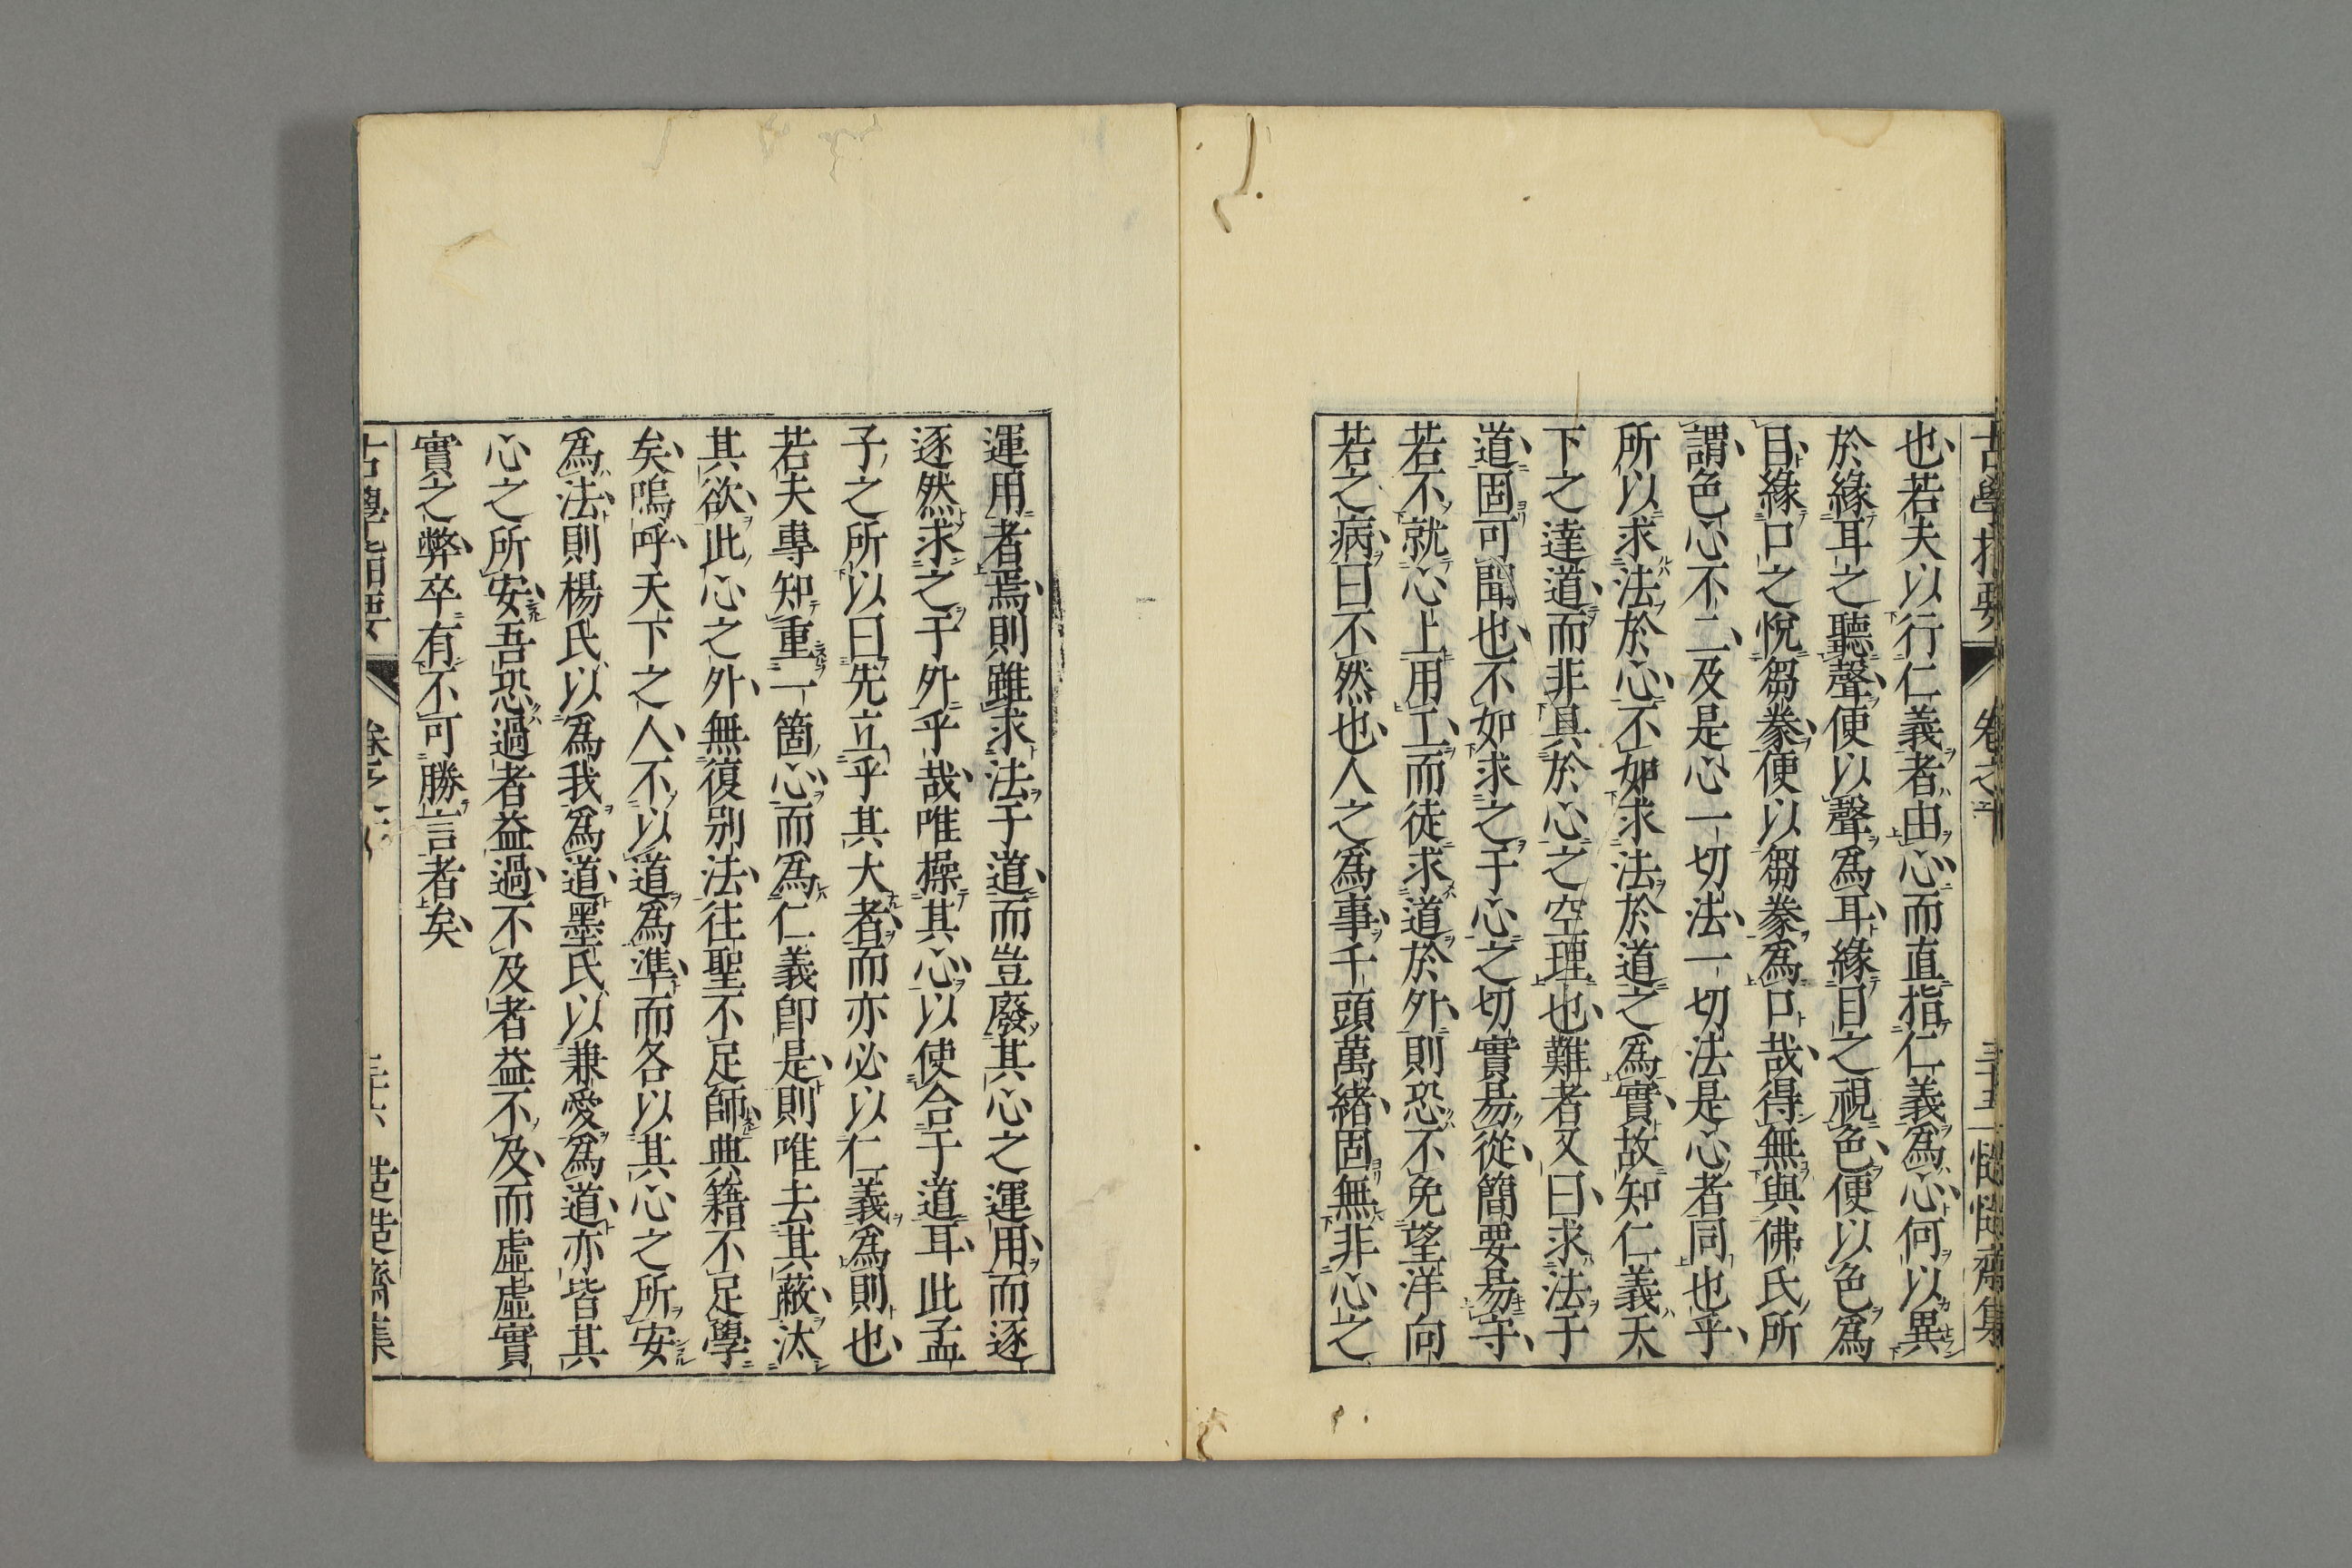 古學指要 卷之下 三十五 慥慥齋集
也若夫以行仁義者由心而直指仁義爲心何以異
於緣耳之聽聲便以聲爲耳緣目之視色便以色爲
目緣口之悅芻豢便以芻豢爲口哉得無與佛氏所
謂色心不二及是心一切法一切法是心者同也乎
所以求法於心不如求法於道之爲實故知仁義天
下之達道而非具於心之空理也難者又曰求法于
道固可聞也不如求之于心之切實易從簡要易守
若不就心上用工而徒求道於外則恐不免望洋向
若之病曰不然也人之爲事千頭萬緒固無非心之
運用者焉則雖求法于道而豈廢其心之運用而逐
逐然求之于外乎哉唯操其心以使合于道耳此孟
子之所以曰先立乎其大者而亦必以仁義爲則也
若夫專知重一箇心而爲仁義卽是則唯去其蔽汰
其欲此心之外無復別法往聖不足師典籍不足學
矣嗚呼天下之人不以道爲準而各以其心之所安
爲法則楊氏以爲我爲道墨氏以兼愛爲道亦皆其
心之所安吾恐過者益過不及者益不及而虛虛實
實之弊卒有不可勝言者矣
古學指要 三十六 慥慥齋集